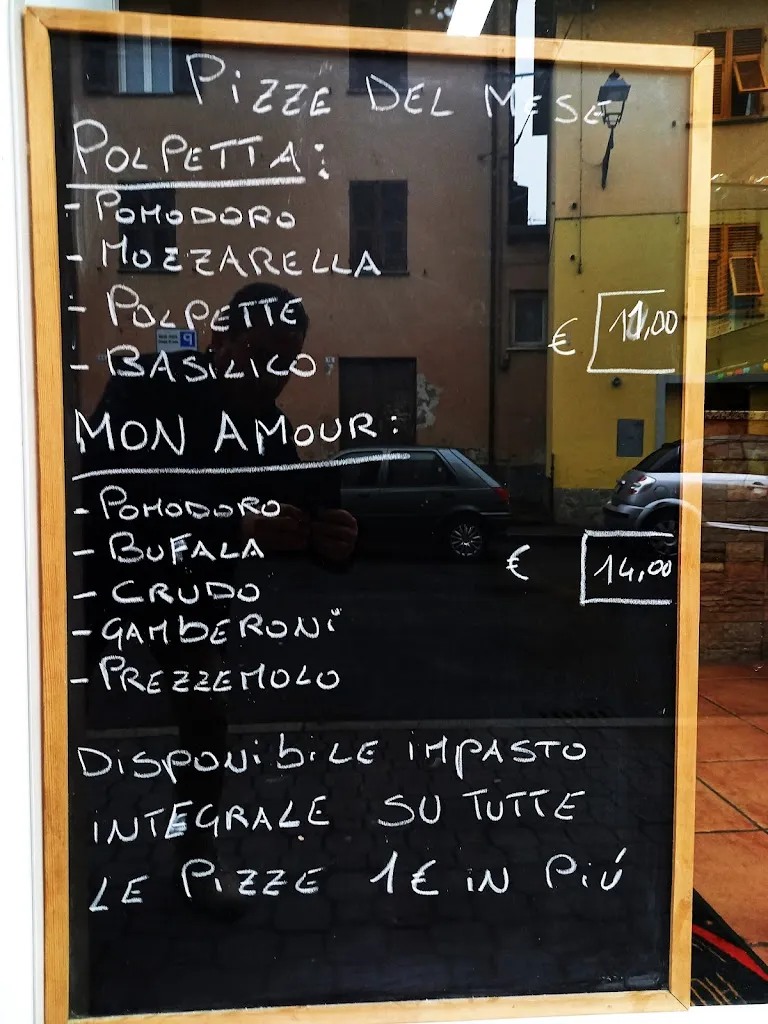 PIZZE DEL MESE
POLPETTA:
- POMODORO
- MOZZARELLA
- POLPETTE
- BASILICO
€ 11,00
MON AMOUR:
- POMODORO
- BUFALA
- CRUDO
- GAMBERONI
- PREZZEMOLO
€ 14,00
DISPONIBILE IMPASTO
INTEGRALE SU TUTTE
LE PIZZE 1€ IN PIÚ